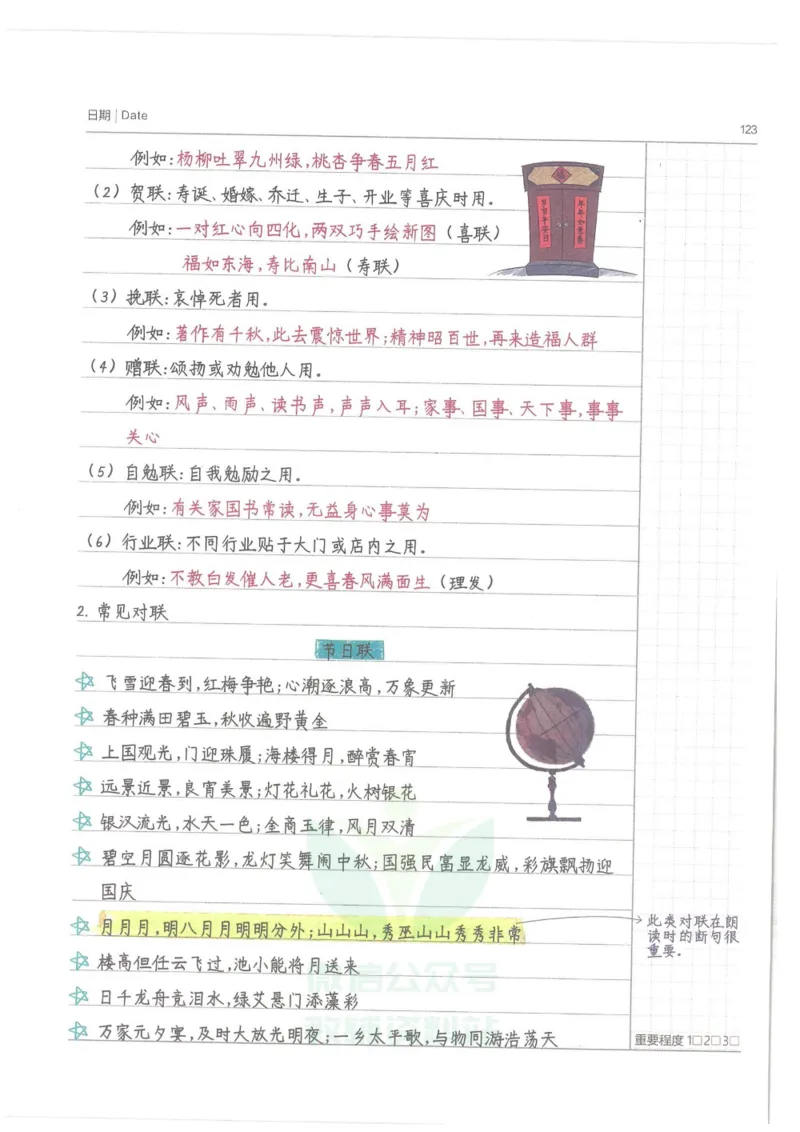 日期 | Date
123
例如:杨柳吐翠九州绿,桃杏争春五月红
(2) 贺联:寿诞、婚嫁、乔迁、生子、开业等喜庆时用。
例如:一对红心向四化,两双巧手绘新图(喜联)
福如东海,寿比南山(寿联)
(3) 挽联:哀悼死者用。
例如:著作有千秋,此去震惊世界;精神昭百世,再来造福人群
(4) 赠联:颂扬或劝勉他人用。
例如:风声、雨声、读书声,声声入耳;家事、国事、天下事,事事
关心
(5) 自勉联:自我勉励之用。
例如:有关家国书常读,无益身心事莫为
(6) 行业联:不同行业贴于大门或店内之用。
例如:不教白发催人老,更喜春风满面生(理发)
2. 常见对联
节日联
飞雪迎春到,红梅争艳;心潮逐浪高,万象更新
春种满田碧玉,秋收遍野黄金
上国观光,门迎珠履;海楼得月,醉赏春宵
远景近景,良宵美景;灯花礼花,火树银花
银汉流光,水天一色;金商玉律,风月双清
碧空月圆逐花影,龙灯笑舞闹中秋;国强民富显龙威,彩旗飘扬迎
国庆
月月月,明八月月明明分外;山山山,秀巫山山秀秀非常
此类对联在朗
读时的断句很
重要。
楼高但任云飞过,池小能将月送来
日千龙舟竞泪水,绿艾悬门添藻彩
万家元夕宴,及时大放光明夜;一乡太平歌,与物同游浩荡天
微信公众号
重要程度 1□2□3□